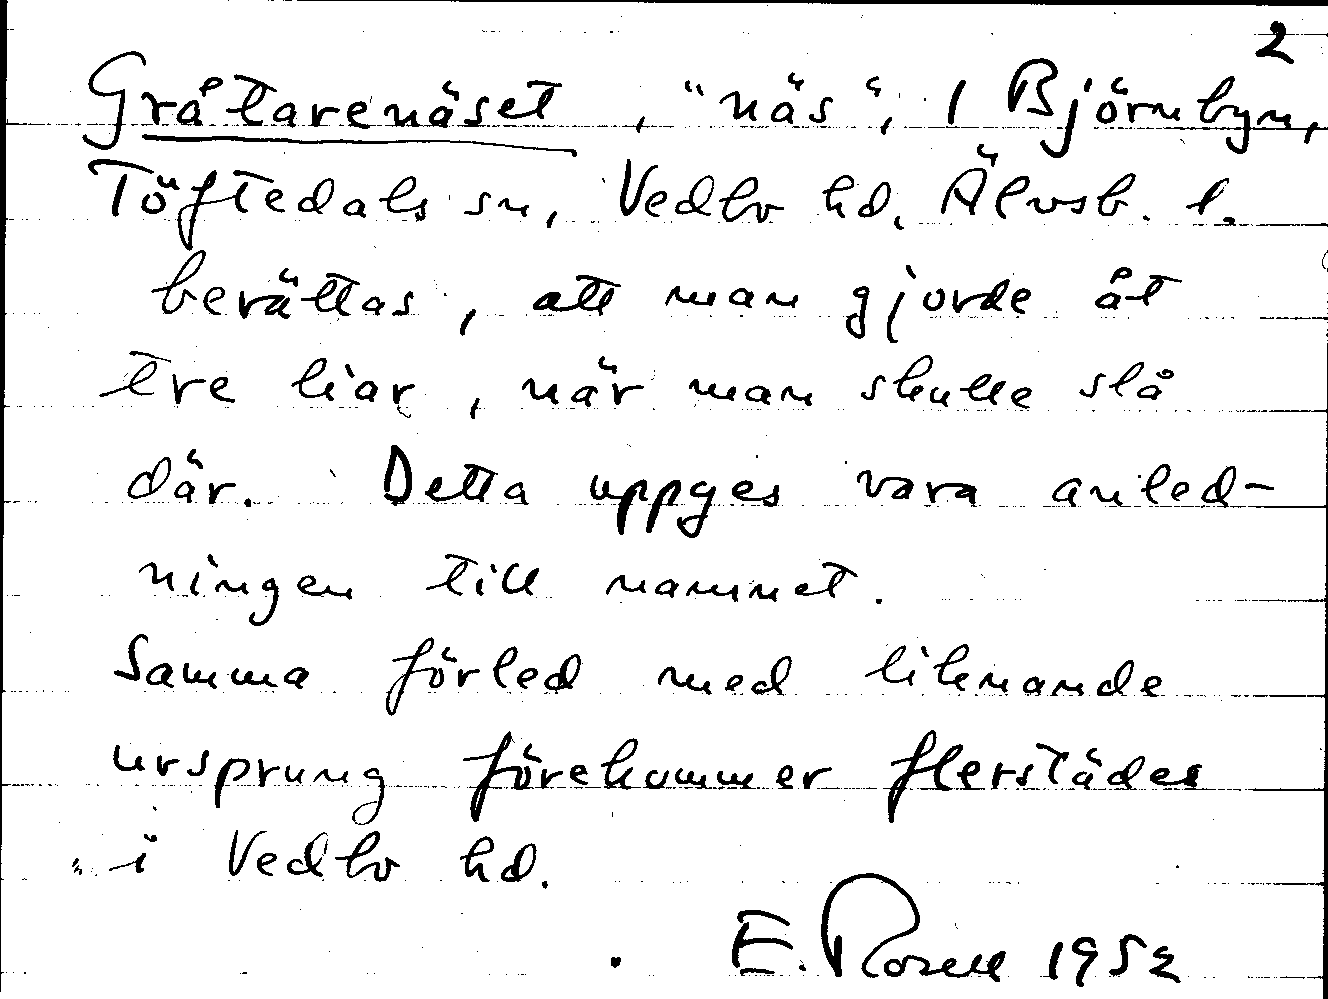 2
Gråtarenäset, "näs", I Björnbyn,
Töftedals sn, Vedbo hd, Älvsb. l.
berättas, att man gjorde åt
tre liar, när man skulle slå
där. Detta uppges vara anled-
ningen till namnet.
Samma förled med liknande
ursprung förekommer flerstädes
i Vedbo hd.
E. Rosell 1952